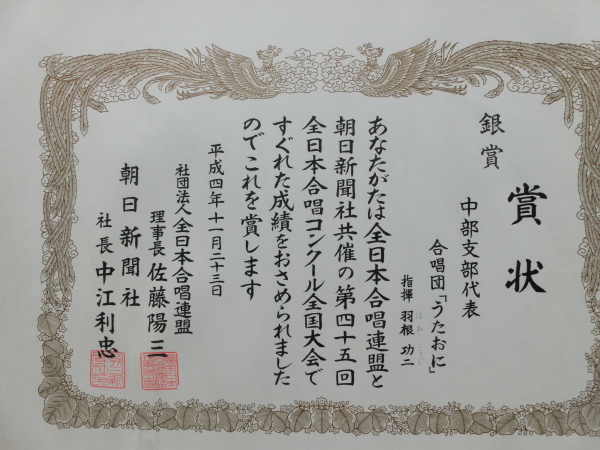 賞状
銀賞
中部支部代表
合唱団「うたおに」
指揮 羽根 功二
あなたがたは全日本合唱連盟と
朝日新聞社共催の第四十五回
全日本合唱コンクール全国大会で
すぐれた成績をおさめられました
のでこれを賞します
平成四年十一月二十三日
社団法人全日本合唱連盟
理事長 佐藤陽三
朝日新聞社
社長 中江利忠